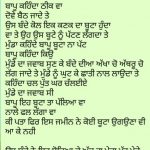 ਬਾਪੂ ਕਹਿੰਦਾ ਠੀਕ ਵਾ
ਦੋਵੇਂ ਬੈਠ ਜਾਦੇ ਤੇ
ਉਸ ਥੱਲੇ ਕੋਲ ਇਕ ਕਣਕ ਦਾ ਬੂਟਾ ਹੁੰਦਾ
ਵਾ ਤੇ ਉਹ ਉਸ ਬੂਟੇ ਨੂੰ ਪੱਟਣ ਲੱਗਦਾ ਤੇ
ਮੁੰਡਾ ਕਹਿੰਦੇ ਬਾਪੂ ਬੂਟਾ ਨਾ ਪੱਟ
ਬਾਪੂ ਕਹਿੰਦਾ ਕਿਉ
ਮੁੰਡੇ ਦਾ ਜਵਾਬ ਸੁਣ ਕੇ ਬੰਦੇ ਦੀਆ ਅੱਖਾ ਚੋ ਅੱਥਰੂ ਚੋ
ਲੱਗ ਜਾਦੇ ਤੇ ਮੁੰਡੇ ਨੂੰ ਘੁਟ ਕੇ ਛਾਤੀ ਨਾਲ ਲਾਉਦਾ ਤੇ
ਕਹਿੰਦਾ ਚਲ ਪੁੱਤ ਘਰ ਚੱਲਈਏ
ਮੁੰਡੇ ਦਾ ਜਵਾਬ ਸੀ
ਬਾਪੂ ਇਹ ਬੂਟਾ ਤਾ ਪੱਲਿਆ ਵਾ
ਨਾਲੇ ਫਲ ਲੱਗਾ ਵਾ
ਕੀ ਪਤਾ ਫਿਰ ਇਸ ਜਮੀਨ ਨੇ ਕੋਈ ਬੂਟਾ ਉਗਾਉਣਾ ਵੀ
ਆ ਕੇ ਨਹੀ